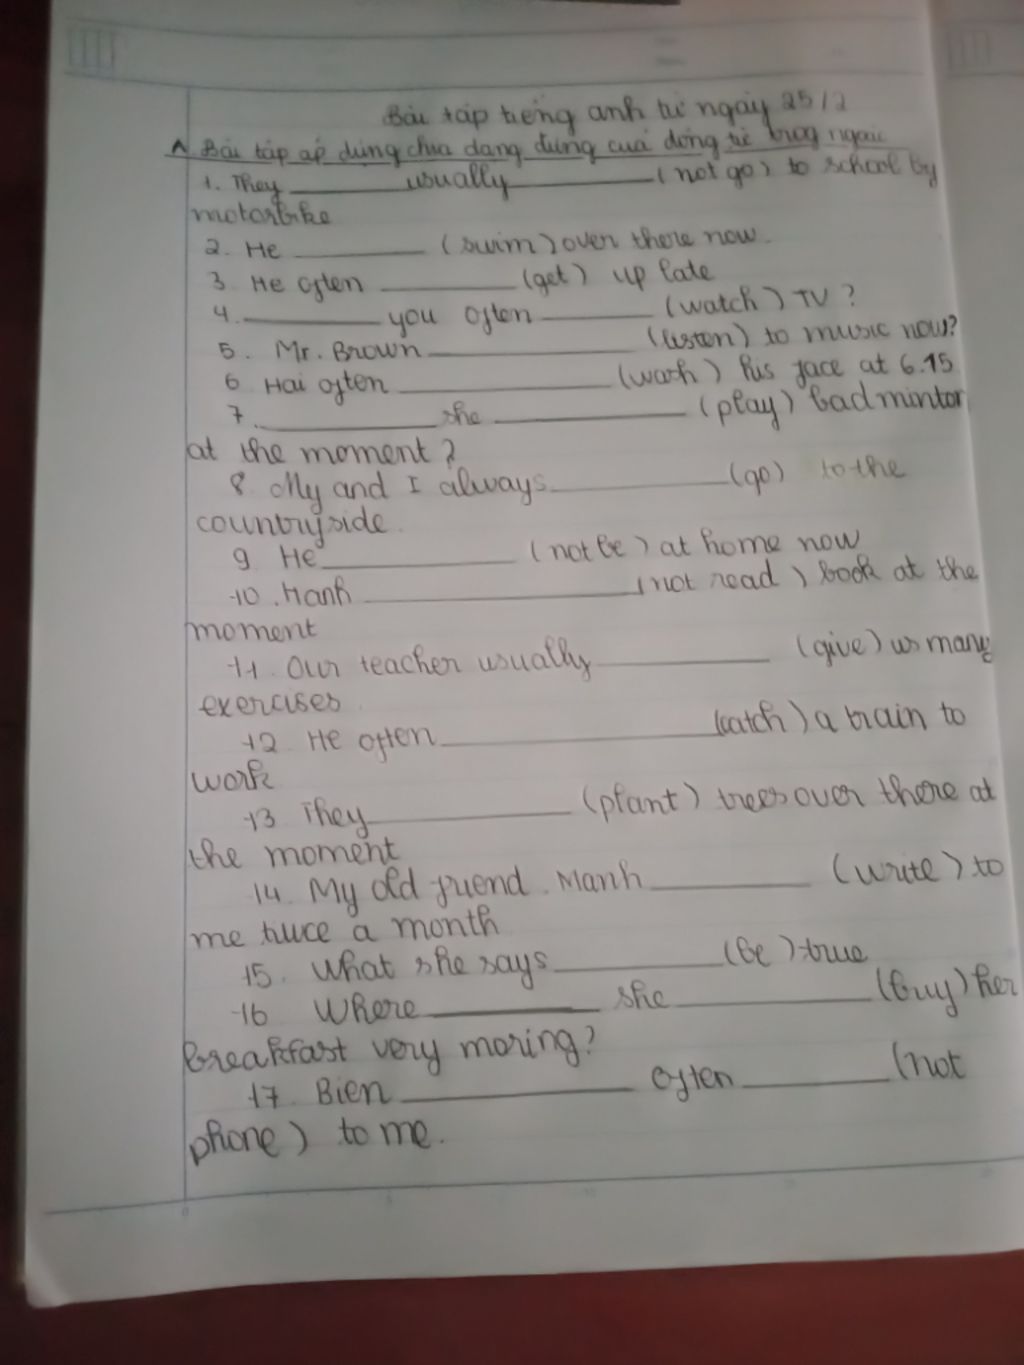 Bài tập tiếng anh từ ngày 25/2
A Bài tập áp dụng chia dạng đúng của động từ trog ngoặc
1. They ________ usually ________ (not go) to school by
motorbike
2. He ________ (swim) over there now.
3. He often ________ (get) up late
4. ________ you often ________ (watch) TV ?
5. Mr. Brown ________ (listen) to music now?
6 Hai often ________ (wash) his face at 6.15
7. ________ she ________ (play) badminton
at the moment ?
8. My and I always ________ (go) to the
countryside.
9 He ________ (not be) at home now
10. Hanh ________ (not read) book at the
moment
11. Our teacher usually ________ (give) us many
exercises.
12 He often ________ (catch) a train to
work
13 They ________ (plant) trees over there at
the moment
14. My old friend. Manh ________ (write) to
me twice a month
15. What she says ________ (be) true
16 Where ________ she ________ (buy) her
breakfast very moring?
17. Bien ________ often ________ (not
phone) to me.